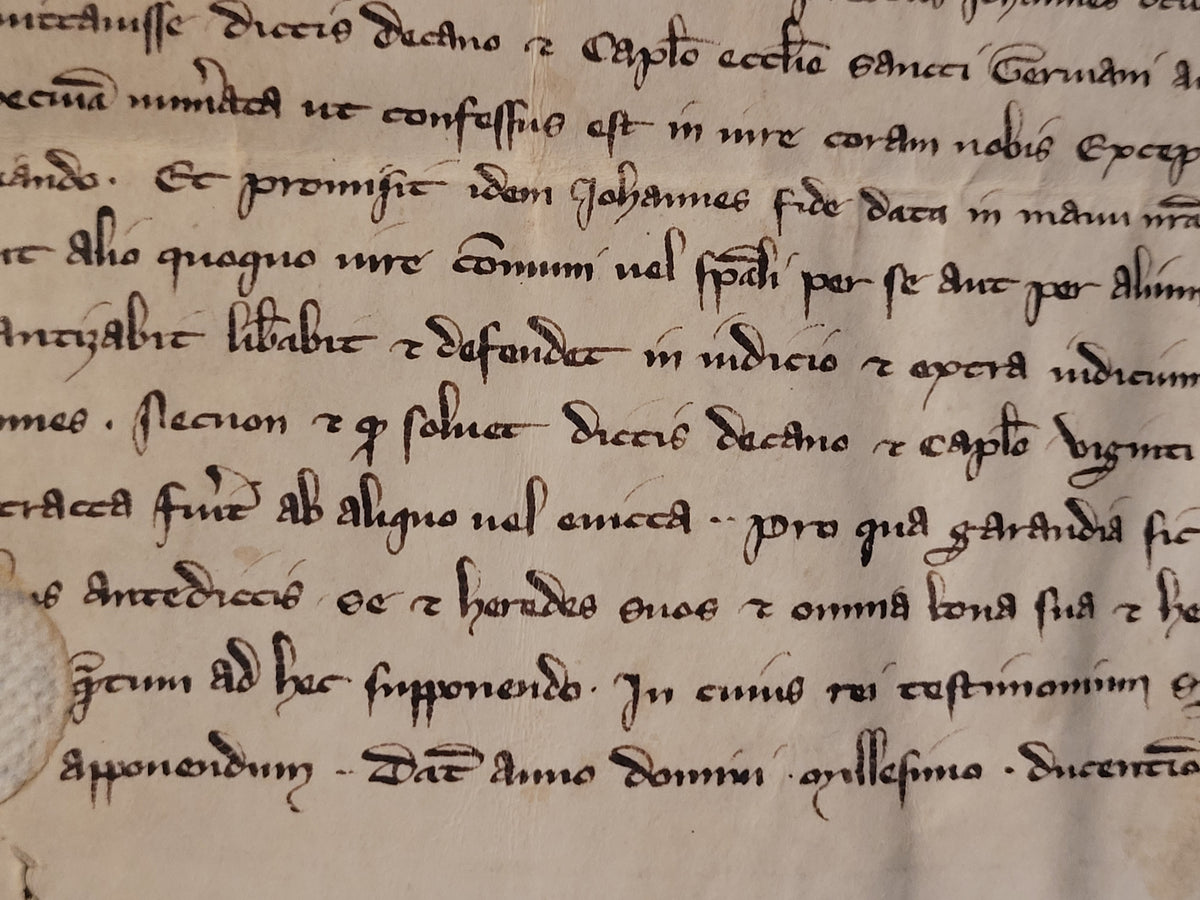 Johannes
dictis decano ⁊ Caplo ecclie sancti Germani
numata ut confessus est in iure coram nobis Excep
Et promisit idem Johannes fide data in manu nra
alio quoquo iure comuni uel spali per se aut per alium
antizabit libabit ⁊ defendet in iudicio ⁊ extra iudicium
nnes . Necnon ⁊ ꝙ soluet dictis decano ⁊ Caplo viginti
tracta fuit ab aliquo uel euicta .. Pro qua garandia
antedictis se ⁊ heredes suos ⁊ omnia bona sua ⁊ he
qtum ad hec supponendo . In cuius rei testimonium
apponendum .. Dat anno domini . millesimo . ducentio